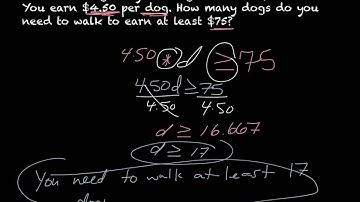 You earn $4.50 per dog. How many dogs do you
need to walk to earn at least $75?
4.50 * d ≥ 75
4.50d ≥ 75
4.50 4.50
d ≥ 16.667
d ≥ 17
You need to walk at least 17